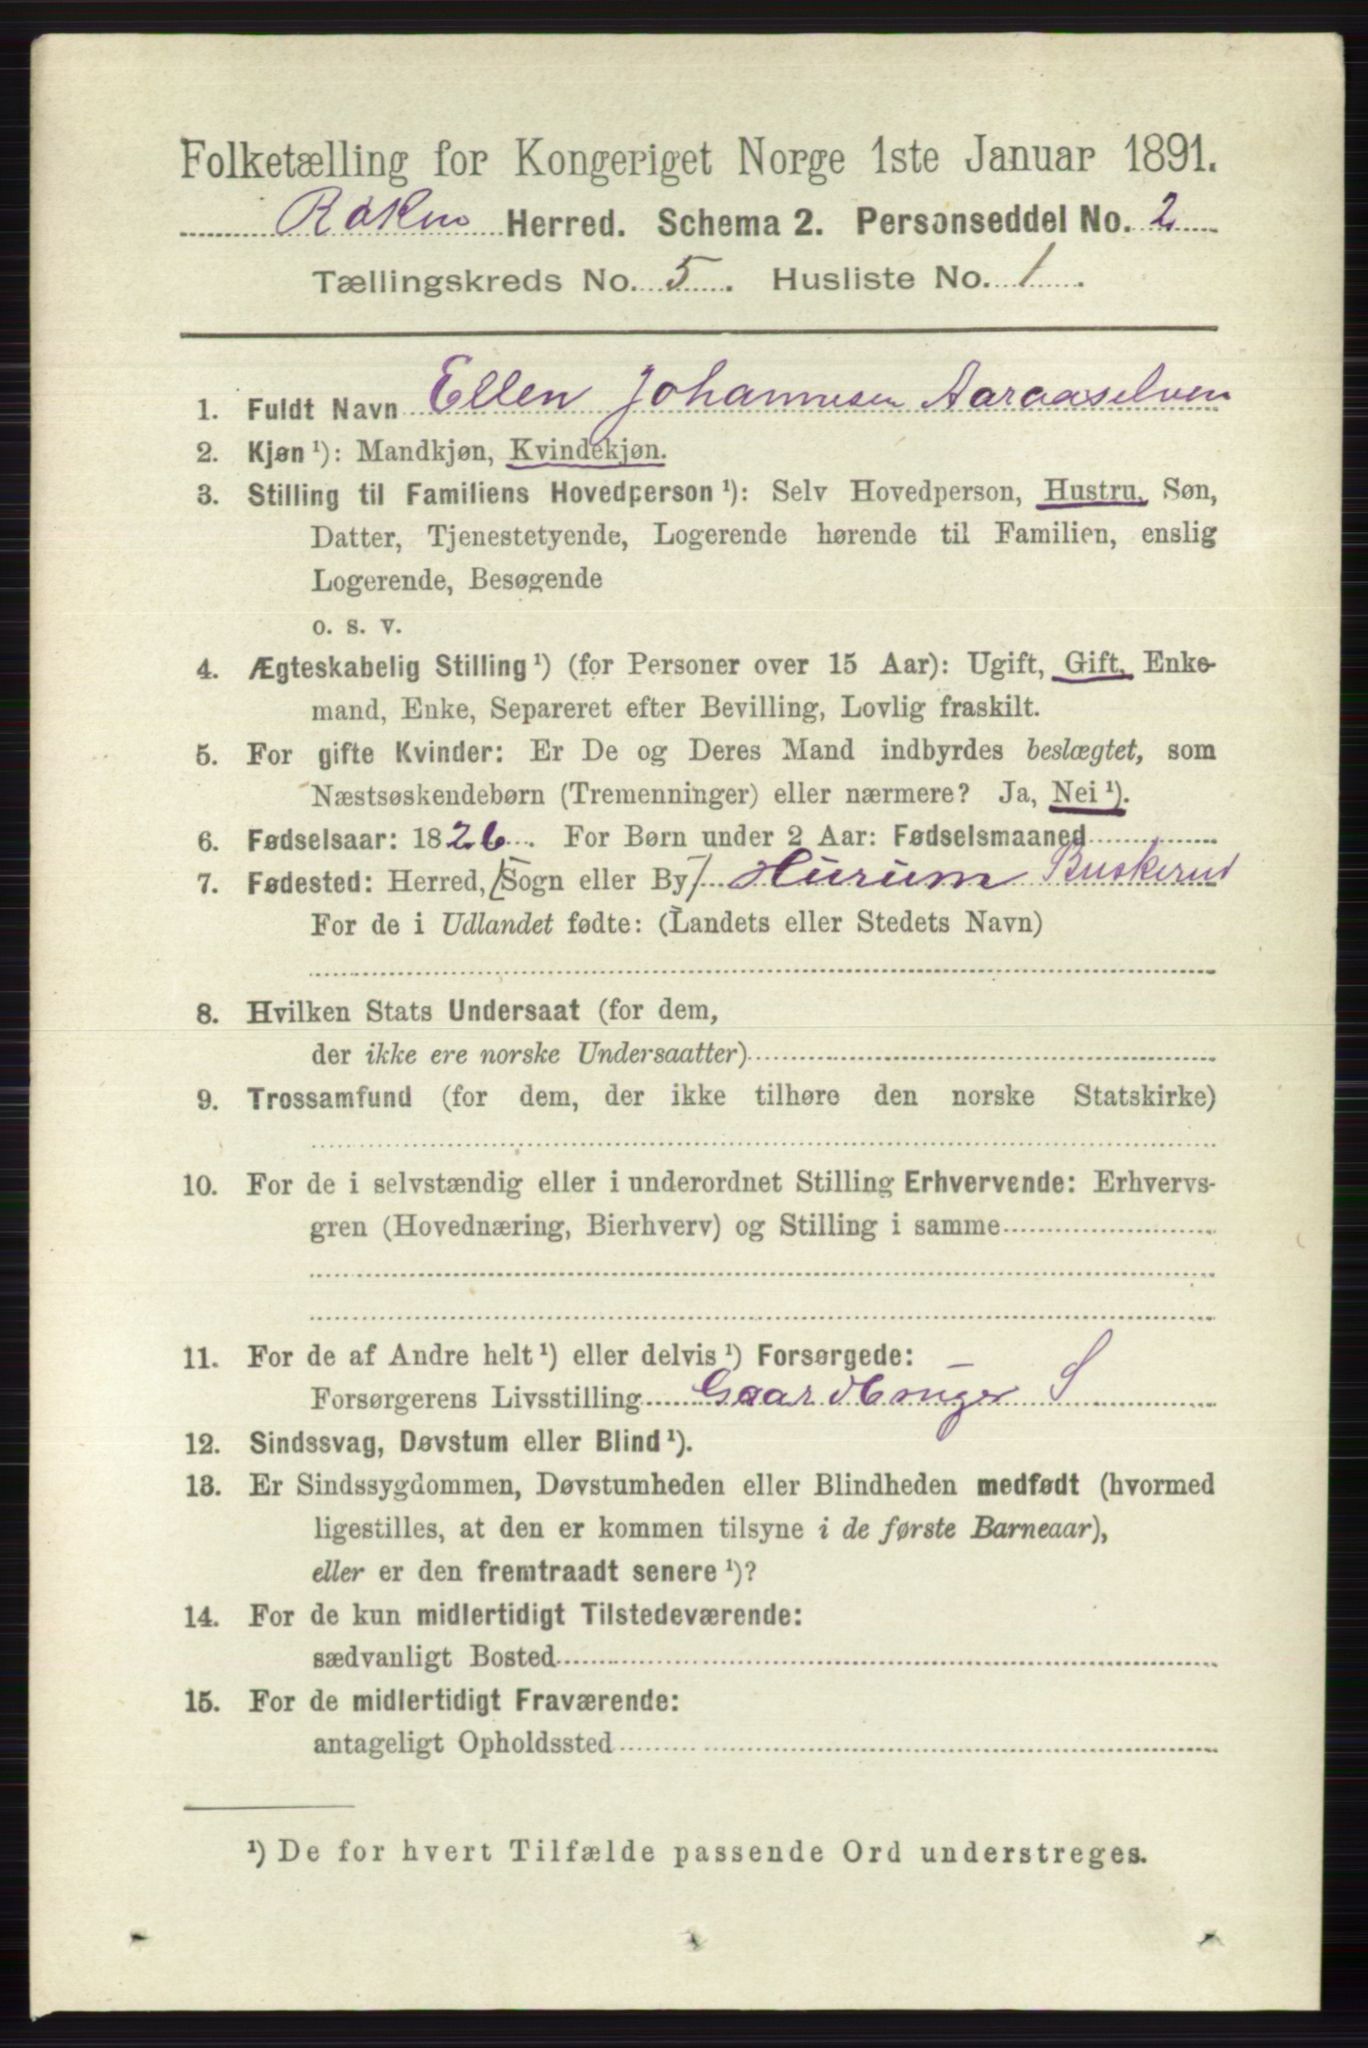 Folketælling for Kongeriget Norge 1ste Januar 1891.
Røken Herred. Schema 2. Personseddel No. 2
Tællingskreds No. 5. Husliste No. 1.
1. Fuldt Navn Ellen Johannesen Aaraaselven
2. Kjøn ¹): Mandkjøn, Kvindekjøn.
3. Stilling til Familiens Hovedperson ¹): Selv Hovedperson, Hustru, Søn,
Datter, Tjenestetyende, Logerende hørende til Familien, enslig
Logerende, Besøgende
o. s. v.
4. Ægteskabelig Stilling ¹) (for Personer over 15 Aar): Ugift, Gift, Enke-
mand, Enke, Separeret efter Bevilling, Lovlig fraskilt.
5. For gifte Kvinder: Er De og Deres Mand indbyrdes beslægtet, som
Næstsøskendebørn (Tremenninger) eller nærmere? Ja, Nei ¹).
6. Fødselsaar: 1826. For Børn under 2 Aar: Fødselsmaaned
7. Fødested: Herred, [Sogn eller By] Hurum Buskerud
For de i Udlandet fødte: (Landets eller Stedets Navn)
8. Hvilken Stats Undersaat (for dem,
der ikke ere norske Undersaatter)
9. Trossamfund (for dem, der ikke tilhøre den norske Statskirke)
10. For de i selvstændig eller i underordnet Stilling Erhvervende: Erhvervs-
gren (Hovednæring, Bierhverv) og Stilling i samme
11. For de af Andre helt ¹) eller delvis ¹) Forsørgede:
Forsørgerens Livsstilling Gaardbruger S
12. Sindssvag, Døvstum eller Blind ¹).
13. Er Sindssygdommen, Døvstumheden eller Blindheden medfødt (hvormed
ligestilles, at den er kommen tilsyne i de første Barneaar),
eller er den fremtraadt senere ¹)?
14. For de kun midlertidigt Tilstedeværende:
sædvanligt Bosted
15. For de midlertidigt Fraværende:
antageligt Opholdssted
¹) De for hvert Tilfælde passende Ord understreges.